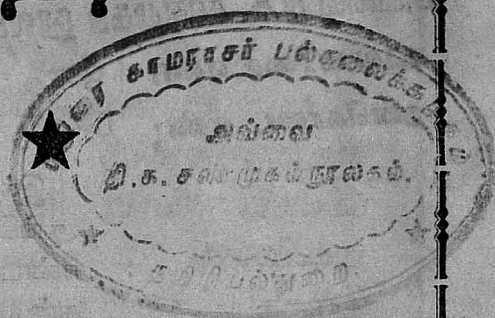 மதுரை காமராசர் பல்கலைக்கழகம்
அவ்வை
தி.க. சண்முகம் நூலகம்.